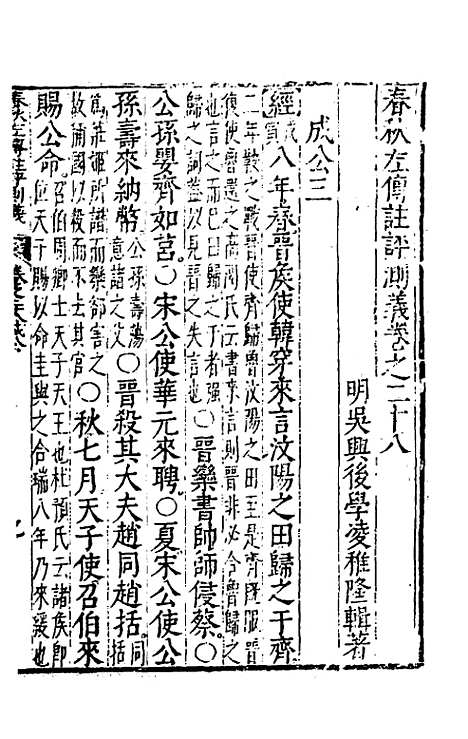 春秋左傳註評測義卷之二十八
明吳興後學凌稚隆輯著
成公三
經八年春晉侯使韓穿來言汶陽之田歸之于齊
二年鞍之戰晉使齊歸魯汶陽之田至是齊既服晉
復使魯還之高閌氏云書來言則晉非必令魯歸之
也言之而已曰歸之于者強
歸之詞蓋以見晉之失言也○晉欒書帥師侵蔡○
公孫嬰齊如莒○宋公使華元來聘○夏宋公使公
孫壽來納幣公孫壽蕩意諸之父○晉殺其大夫趙同趙括同括
爲莊姬所譖而欒郤害之
故稱國以殺而不去其官○秋七月天子使召伯來
賜公命召伯周卿士天子天王也杜預氏云諸侯即
位天子賜以命圭與之合瑞八年乃來緩也